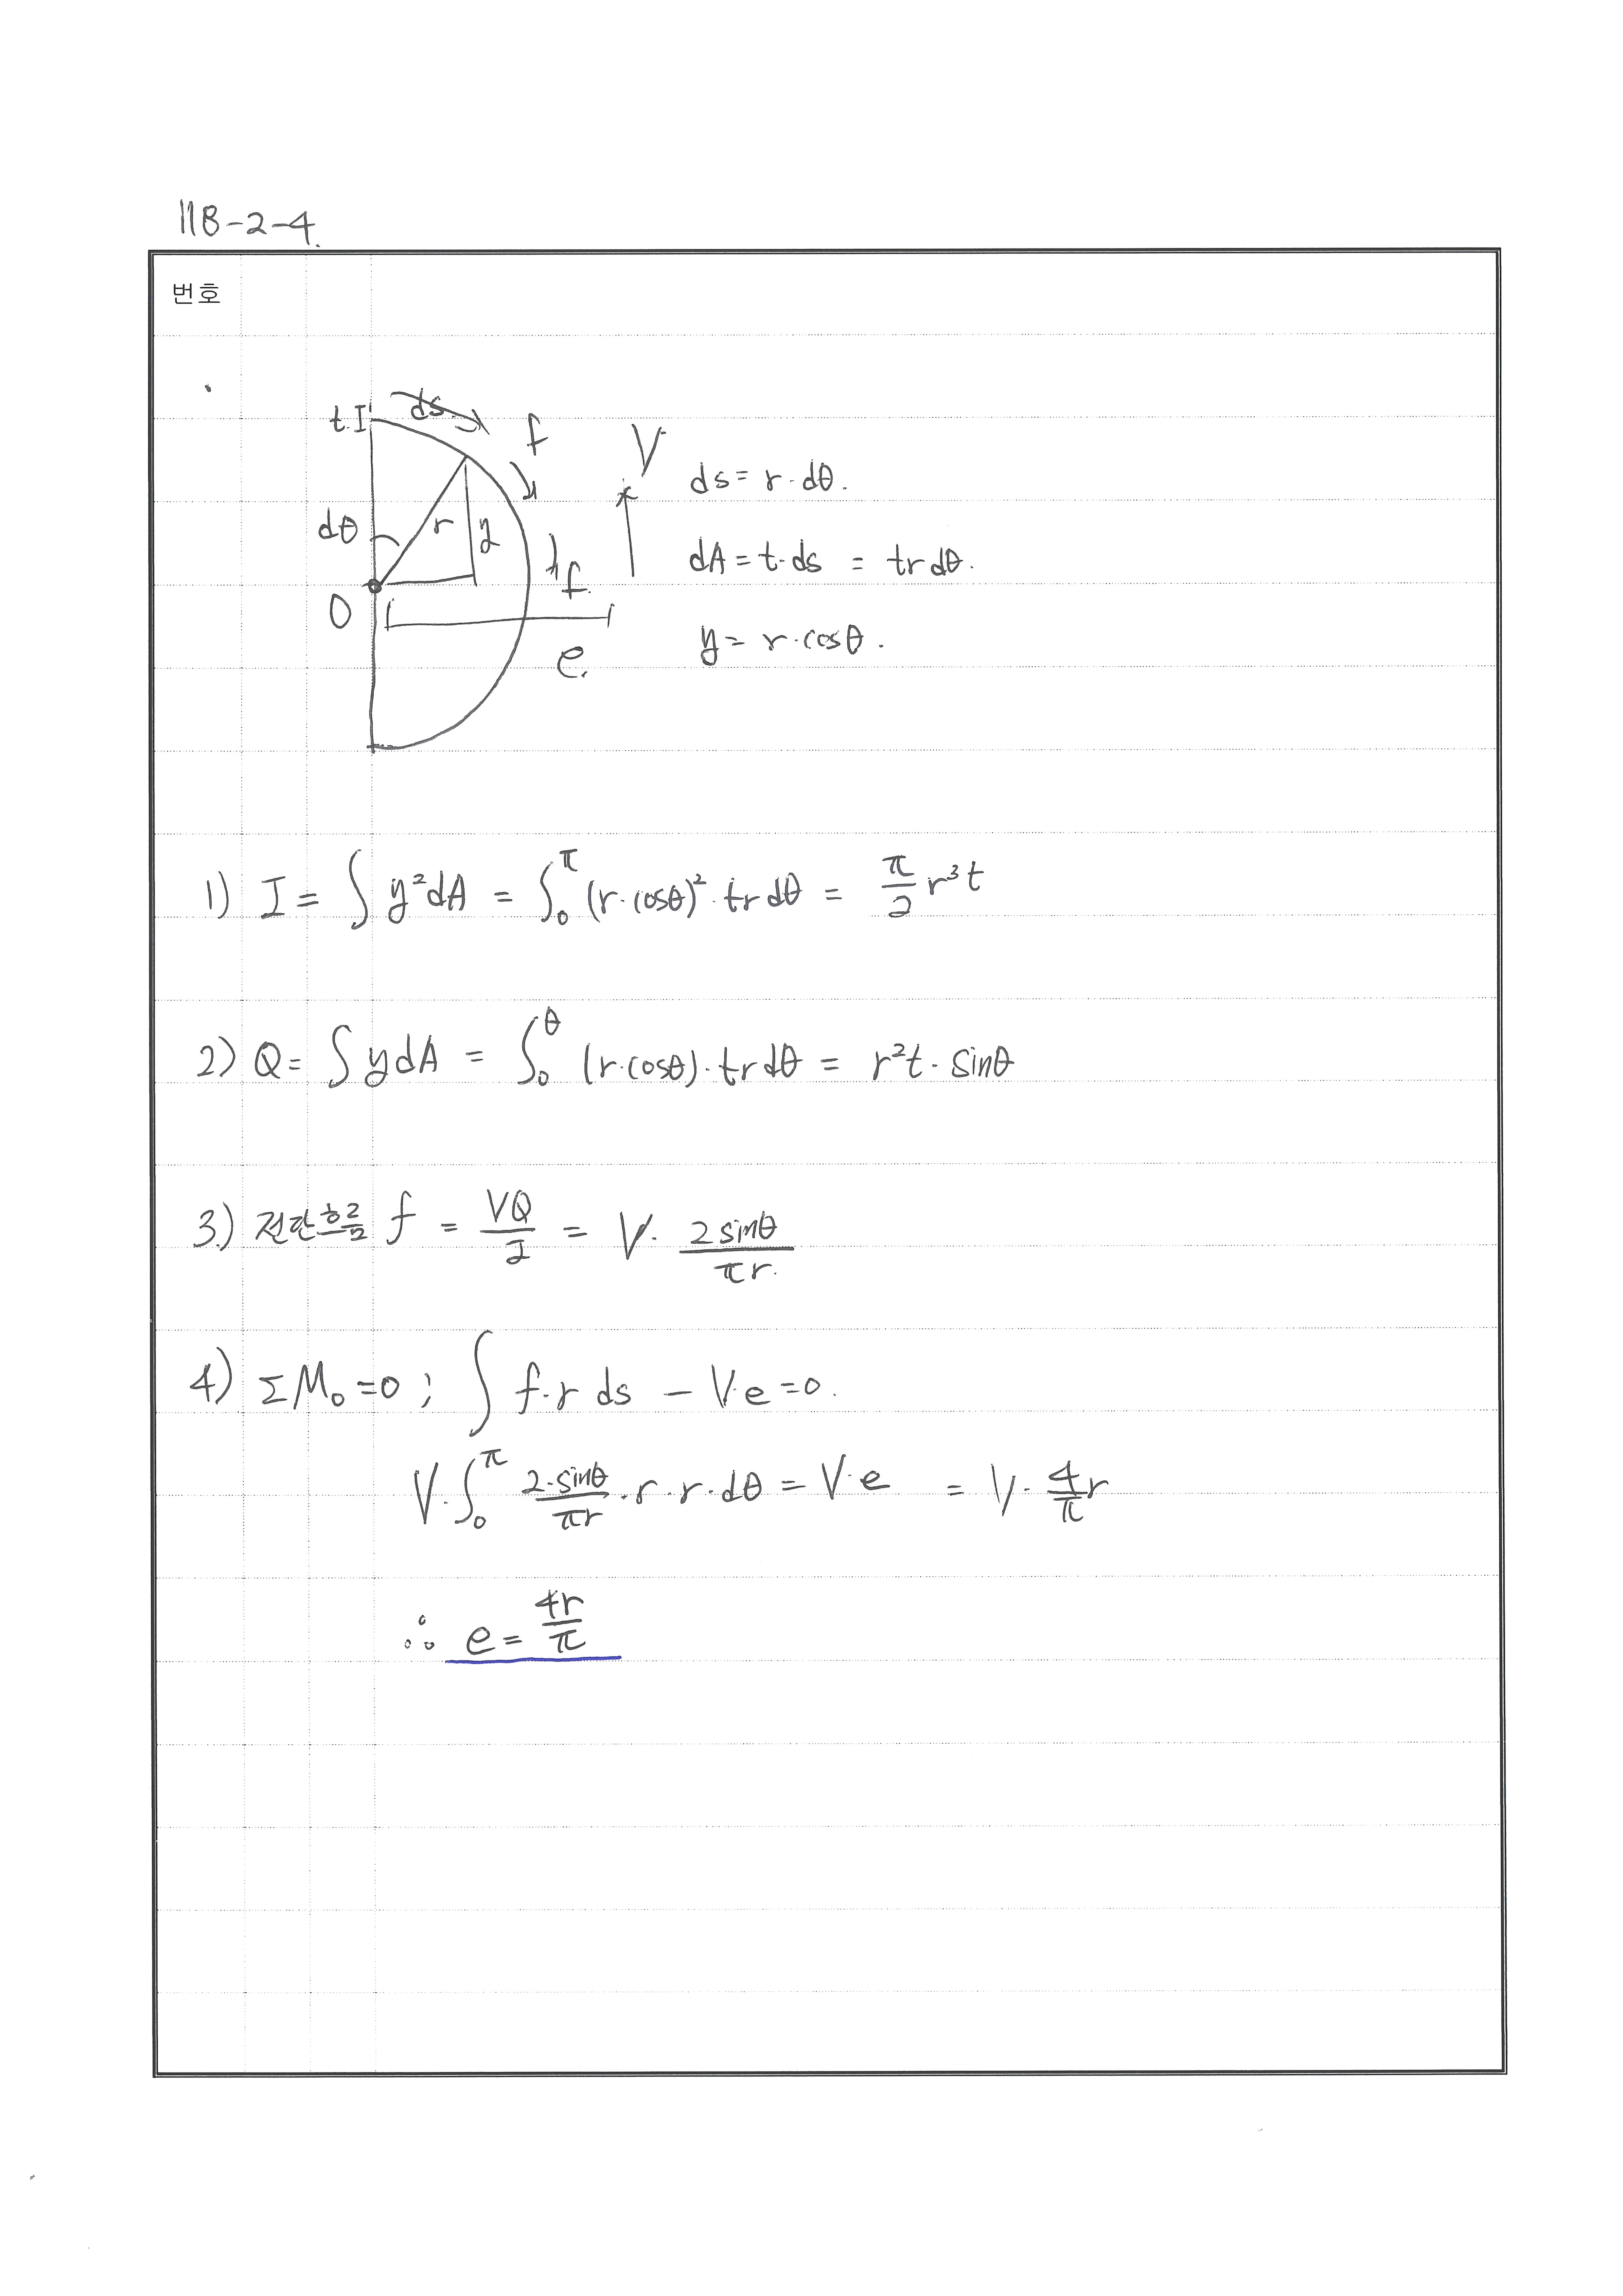 118-2-4.
번호
t I ds f V
ds = r·dθ.
dθ r y
f
dA = t·ds = tr dθ.
O
e.
y = r·cosθ.
1) I = ∫ y²dA = ∫₀^π (r·cosθ)²·tr dθ = π/2 r³t
2) Q = ∫ y dA = ∫₀^θ (r·cosθ)·tr dθ = r²t·sinθ
3.) 전단흐름 f = VQ/I = V· 2sinθ/πr.
4) ΣM₀ = 0 ; ∫ f·r ds − V·e = 0.
V·∫₀^π 2·sinθ/πr ·r·r·dθ = V·e = V· 4/π r
∴ e = 4r/π